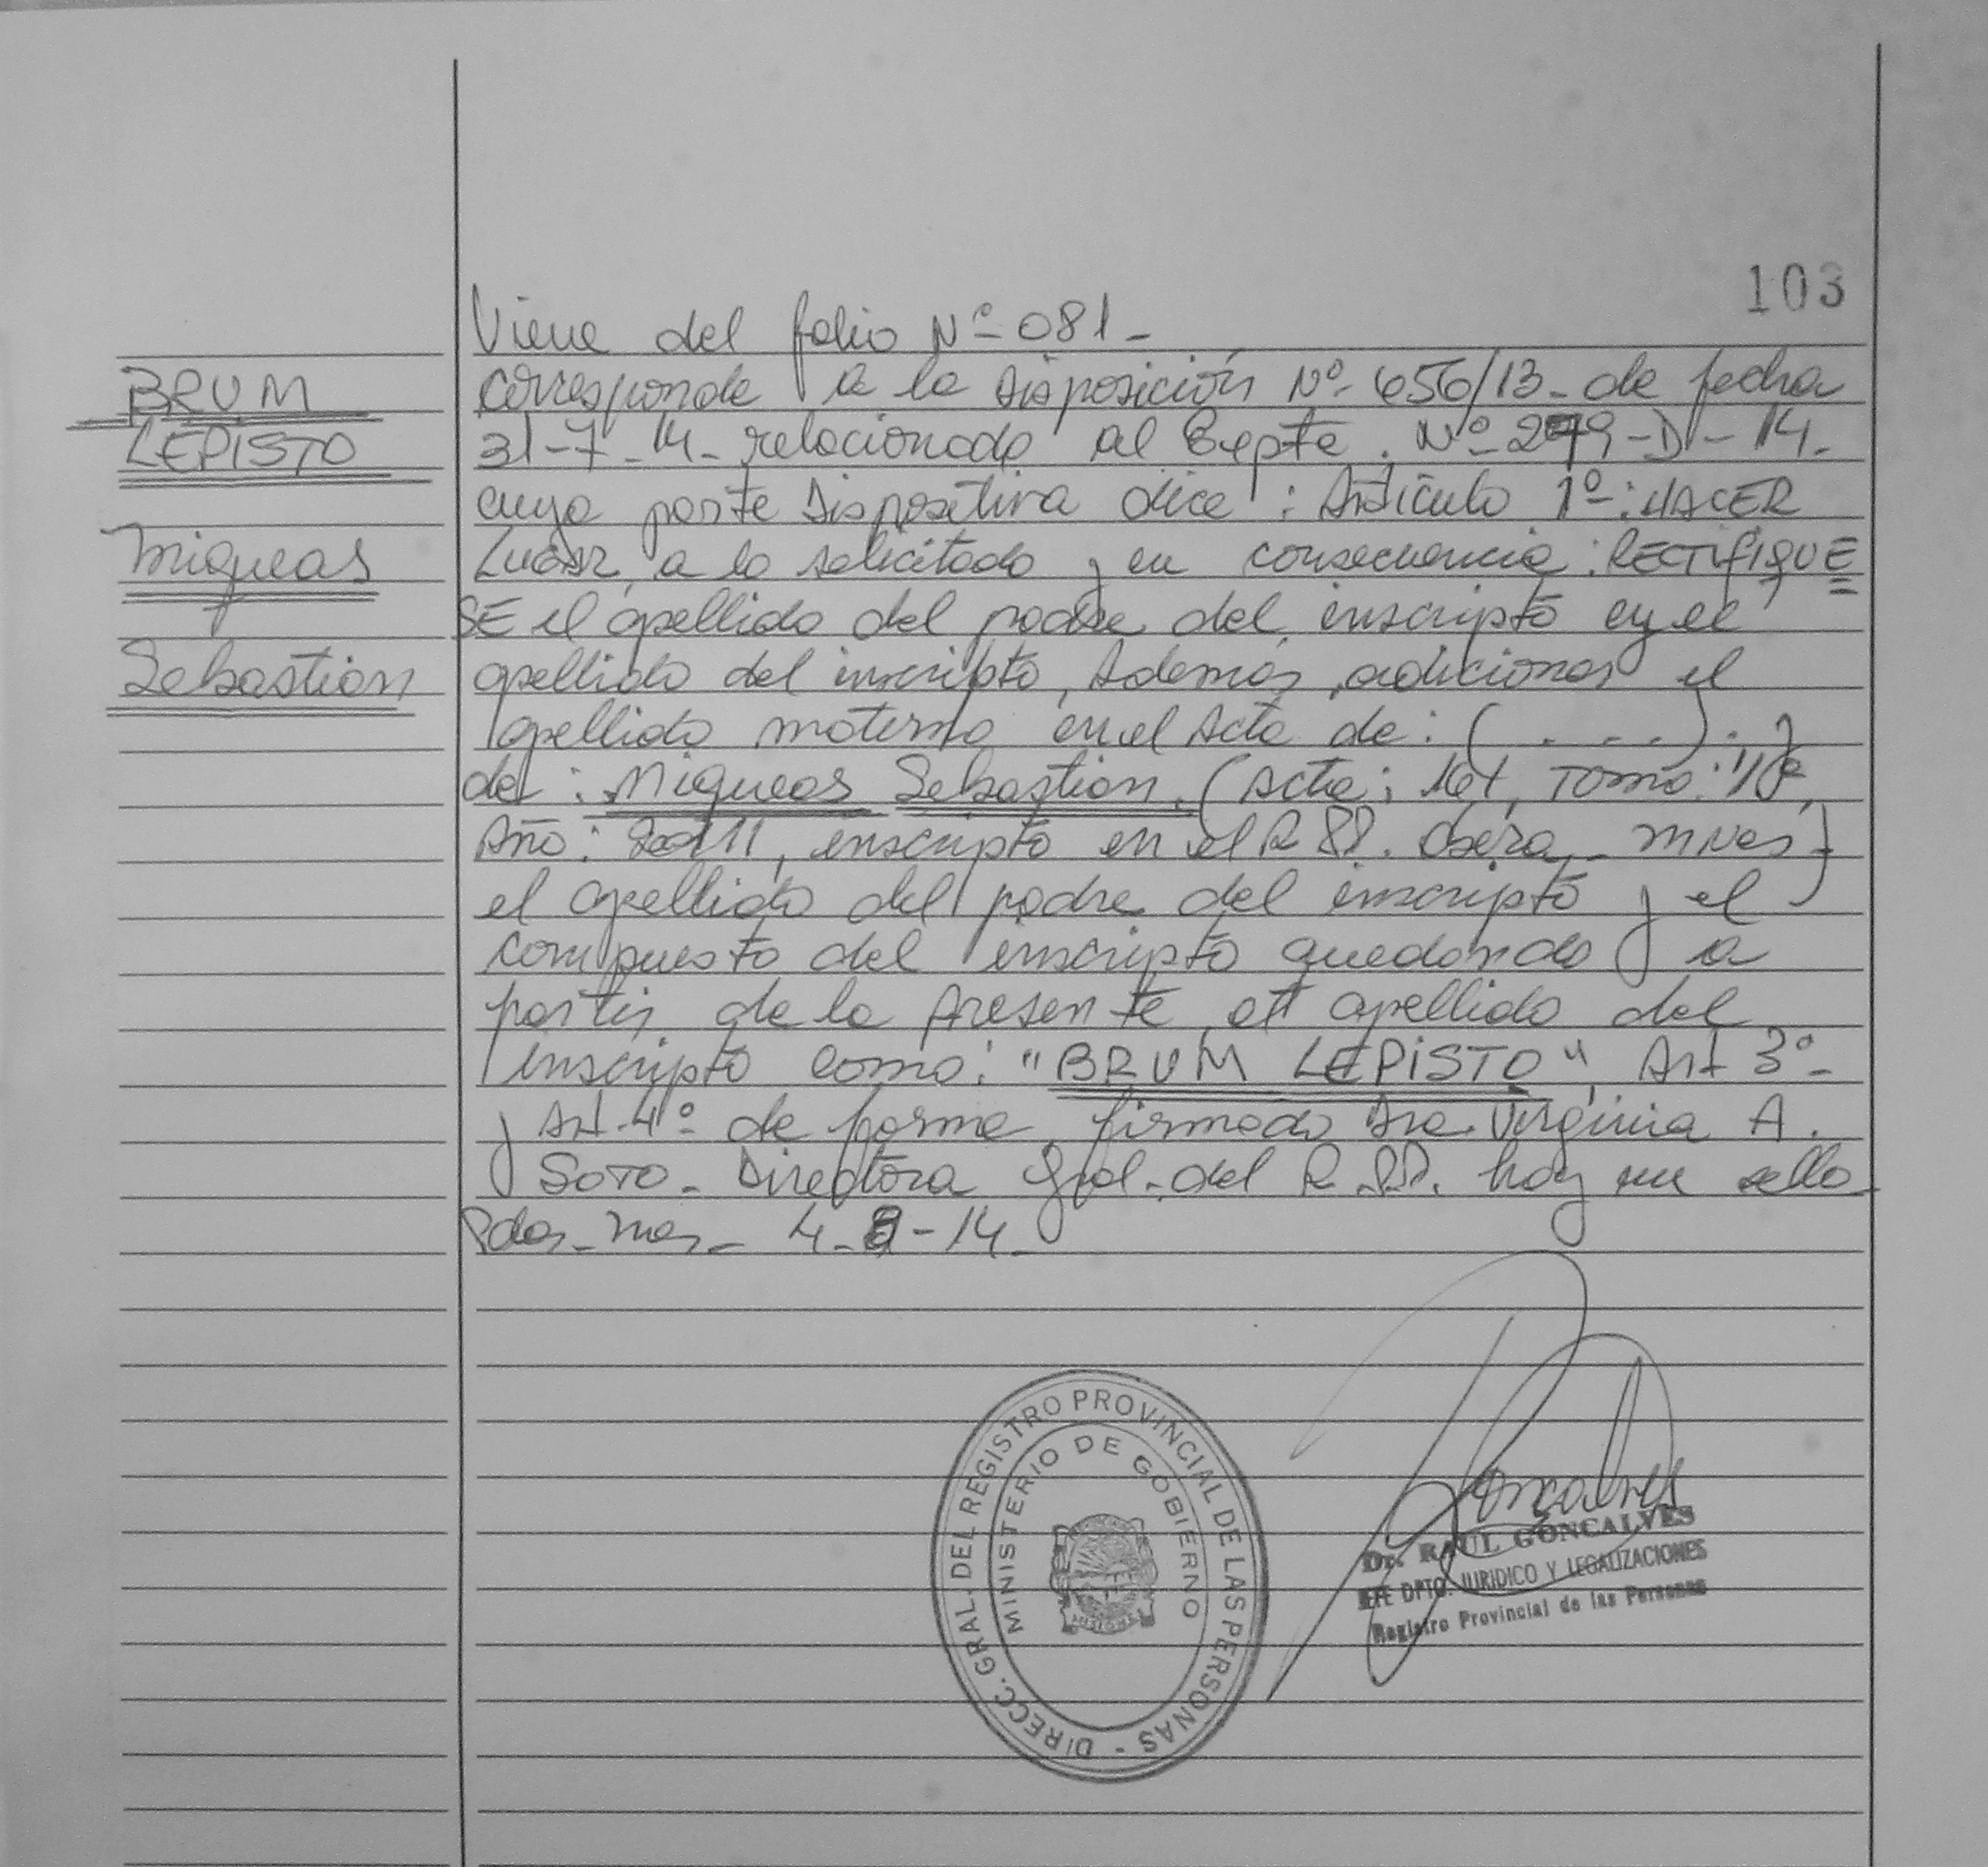 103
BRUM
LEPISTO
Miqueas
Sebastián
Viene del folio Nº 081-
Corresponde a la Disposición Nº 656/13- de fecha
31-7-14- relacionado al Expte. Nº 279-D-14-
cuya parte Dispositiva dice: Artículo 1º: HACER
LUGAR a lo solicitado y en consecuencia: RECTIFIQUE
SE el apellido del padre del inscripto en el
apellido del inscripto, Además adicionar el
apellido materno en el Acta de: (....). y
de: Miqueas Sebastián. (Acta: 161, Tomo:
Año: 2011, inscripto en el R.P.P. Oberá - Mnes)
el apellido del padre del inscripto y el
compuesto del inscripto quedando a
partir de la presente el apellido del
inscripto como: "BRUM LEPISTO". Art 3º-
y Art. 4º de forma, firmado Dra. Virginia A.
Soto - Directora Gral. del R.P.P. hay un sello
Pdas. Mnes- 4-8-14-
DIRECC. GRAL. DEL REGISTRO PROVINCIAL DE LAS PERSONAS -
MINISTERIO DE GOBIERNO
MISIONES
Goncalves
Dr. RAUL GONCALVES
JEFE DPTO. JURIDICO Y LEGALIZACIONES
Registro Provincial de las Personas